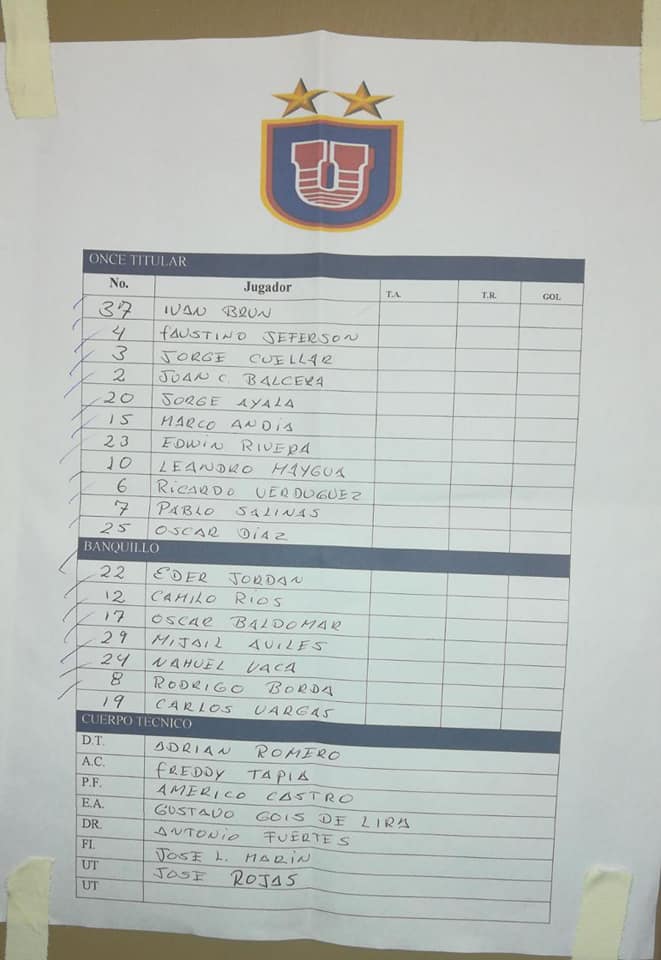 U
ONCE TITULAR
No. Jugador T.A. T.R. GOL
37 IVAN BRUN
4 FAUSTINO JEFERSON
3 JORGE CUELLAR
2 JUAN C. BALCERA
20 JORGE AYALA
15 MARCO ANDIA
23 EDWIN RIVERA
10 LEANDRO MAYGUA
6 RICARDO VERDUGUEZ
7 PABLO SALINAS
25 OSCAR DIAZ
BANQUILLO
22 EDER JORDAN
12 CAMILO RIOS
17 OSCAR BALDOMAR
29 MIJAIL AVILES
24 NAHUEL VACA
8 RODRIGO BORDA
19 CARLOS VARGAS
CUERPO TECNICO
D.T. ADRIAN ROMERO
A.C. FREDDY TAPIA
P.F. AMERICO CASTRO
E.A. GUSTAVO GOIS DE LIRA
DR. ANTONIO FUERTES
FI. JOSE L. MARIN
UT JOSE ROJAS
UT